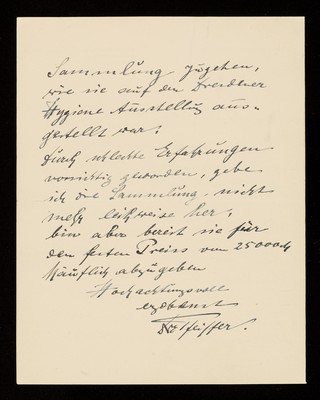 Sammlung zugehen,
wie sie auf der Dresdener
Hygiene Ausstellung aus-
gestellt war;
Durch schlechte Erfahrungen
vorsichtig geworden, gebe
ich die Sammlung nicht
mehr leihweise her,
bin aber bereit sie für
den festen Preiss von 25000 M
käuflich abzugeben
Hochachtungsvoll
ergebenst
Dr Pfeiffer.